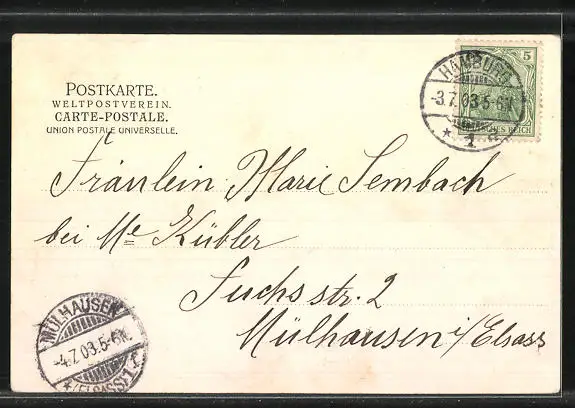 POSTKARTE.
WELTPOSTVEREIN.
CARTE-POSTALE.
UNION POSTALE UNIVERSELLE.
5
HAMBURG
-3.7.03.5-6N.
* 1
REICH
Fräulein Marie Sembach
bei Me Kübler
Fuchsstr. 2
Mülhausen i/Elsass
MÜLHAUSEN
-4.7.03.5-6N.